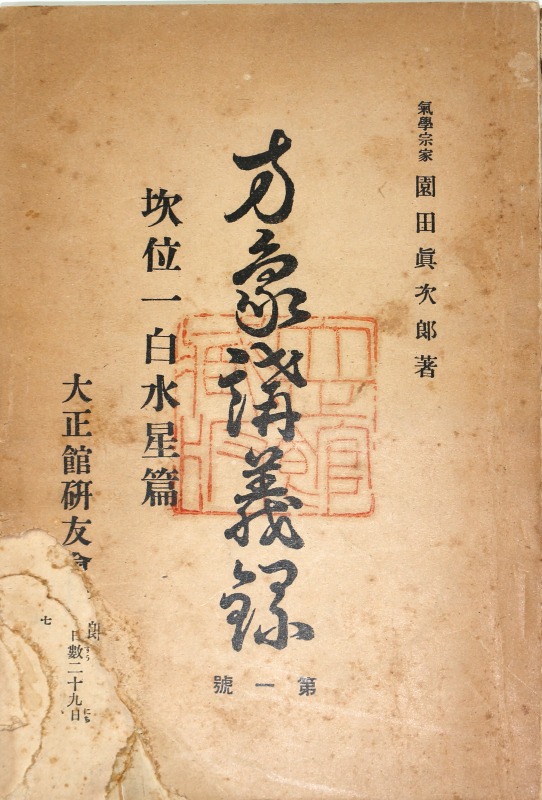 氣學宗家 園田眞次郎著
方象講義録
第一號
坎位一白水星篇
大正館硏友會
日數二十九日
七